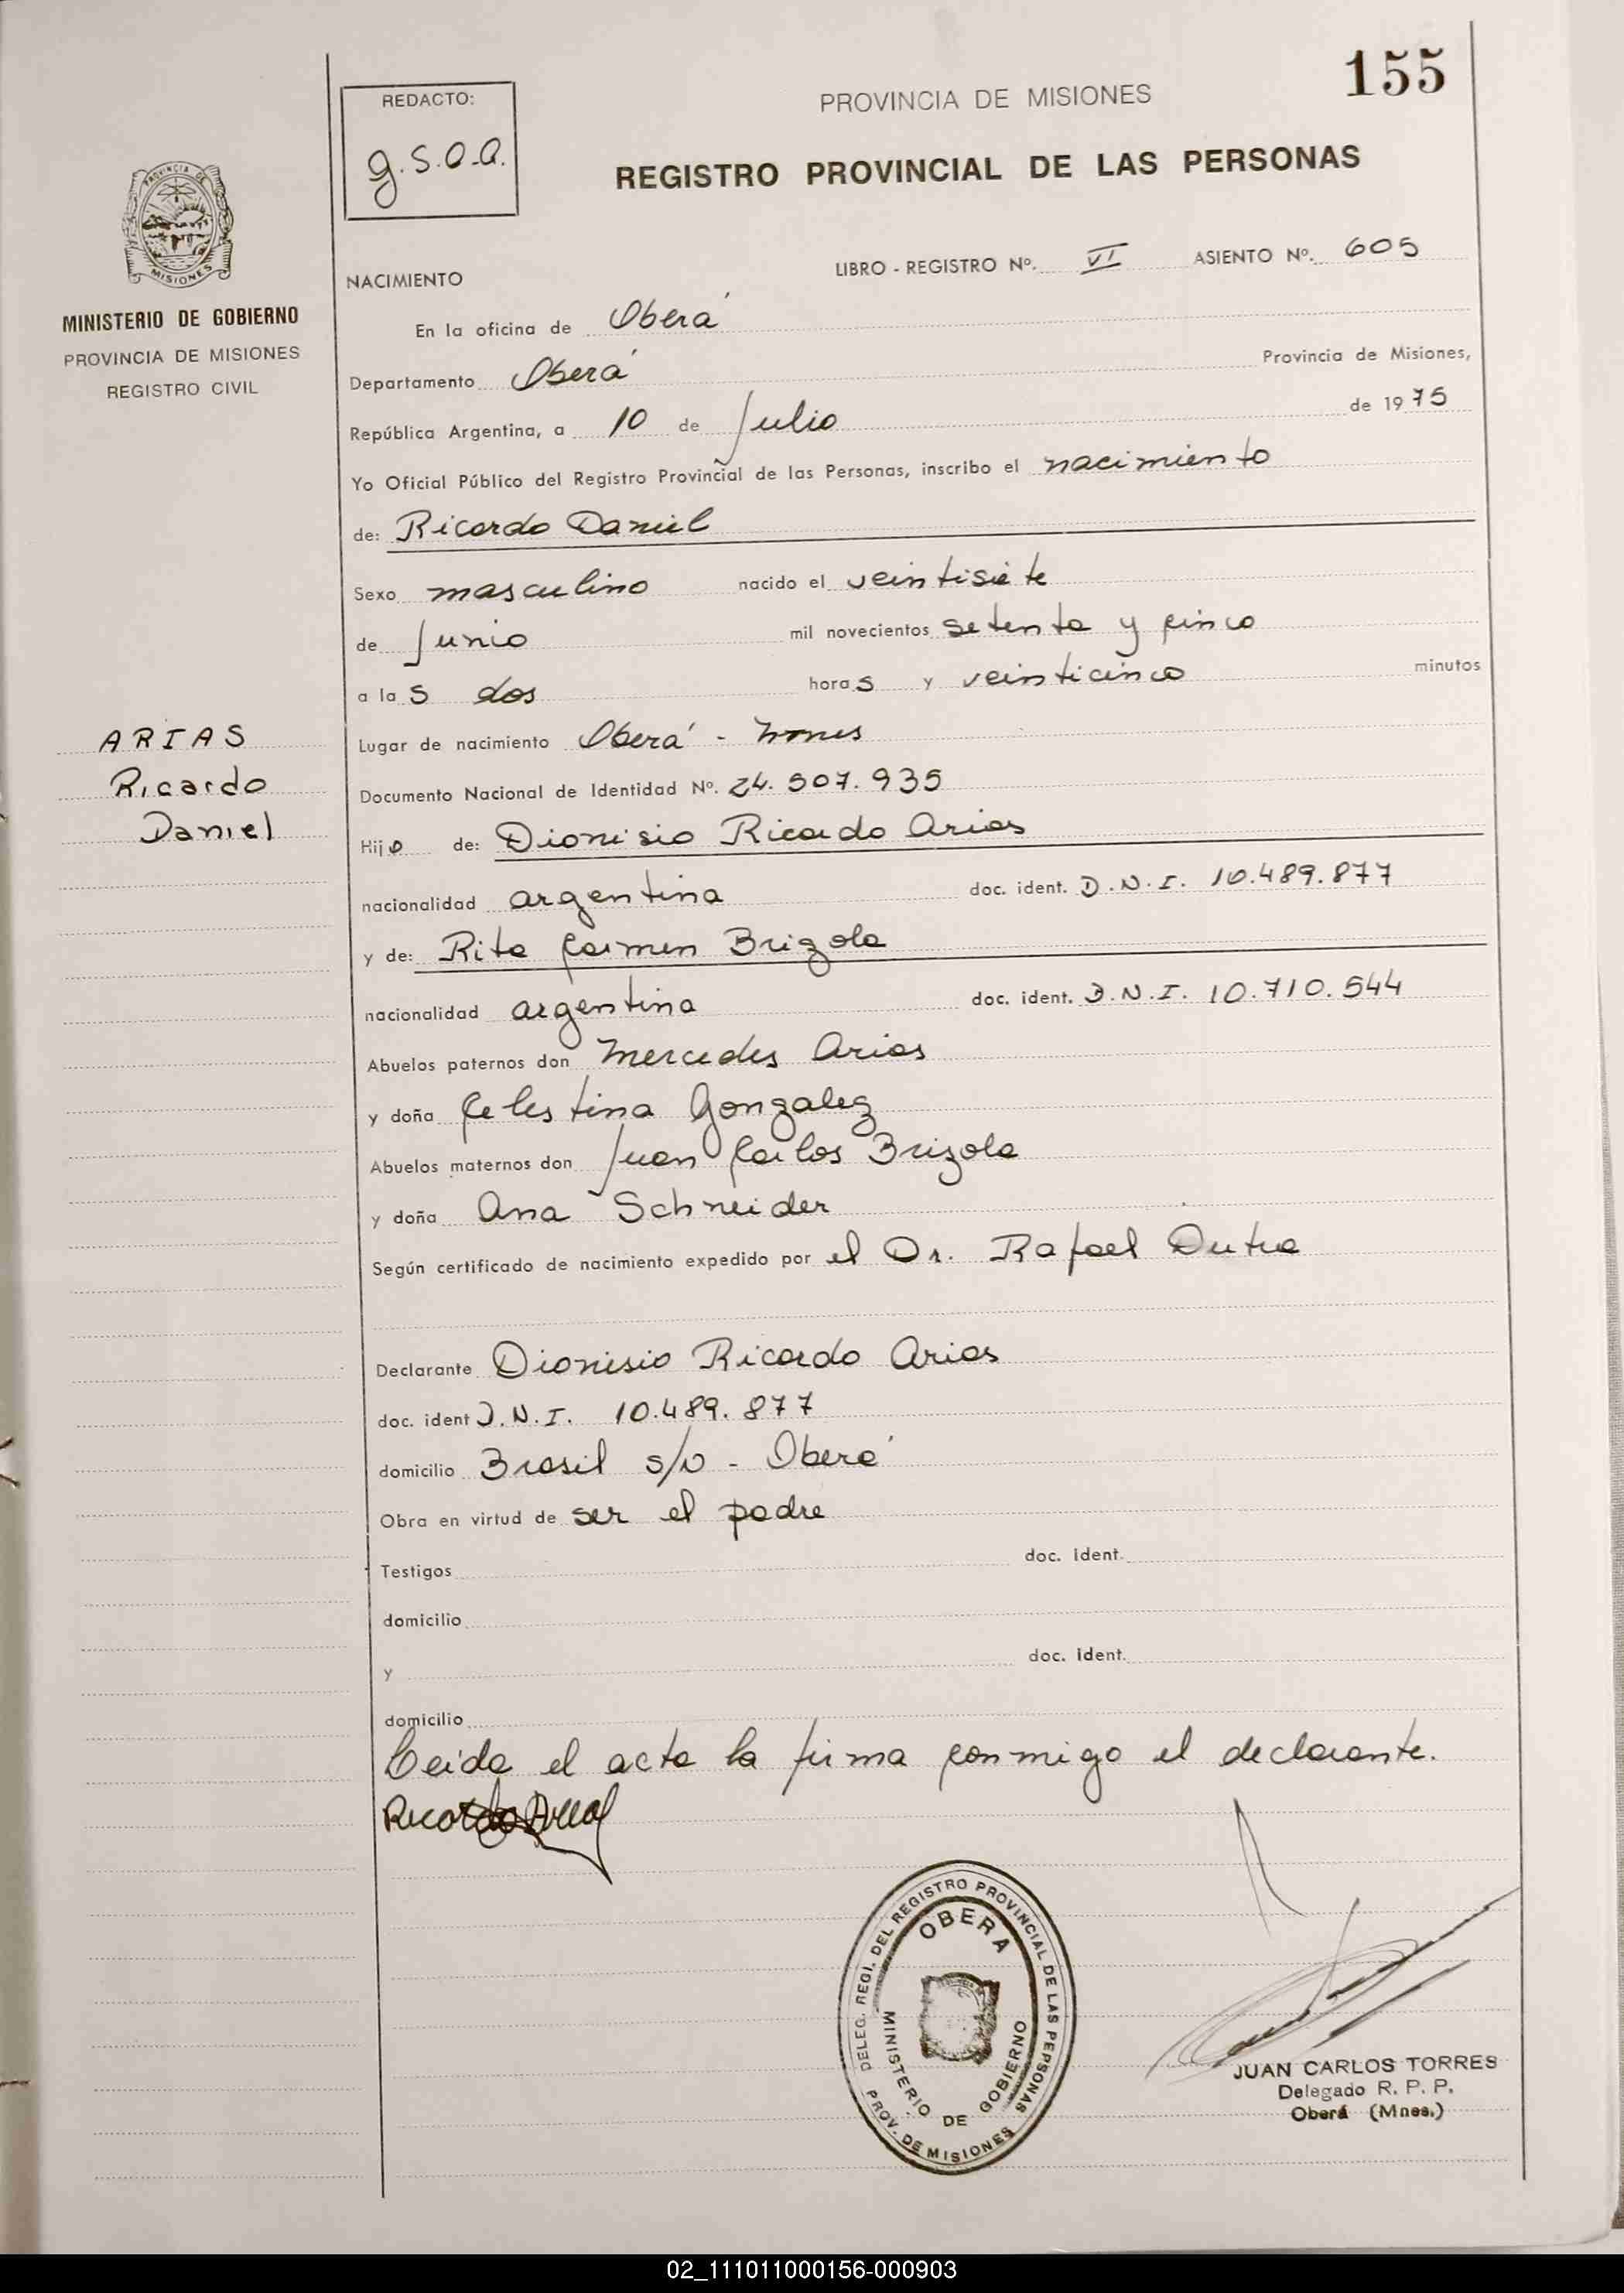 155
REDACTO:
g.S.O.a.
PROVINCIA DE MISIONES
REGISTRO PROVINCIAL DE LAS PERSONAS
PROVINCIA DE
MISIONES
MINISTERIO DE GOBIERNO
PROVINCIA DE MISIONES
REGISTRO CIVIL
LIBRO - REGISTRO Nº. VI ASIENTO Nº. 605
NACIMIENTO
En la oficina de Oberá
Departamento Oberá Provincia de Misiones,
República Argentina, a 10 de Julio de 1975
Yo Oficial Público del Registro Provincial de las Personas, inscribo el nacimiento
de: Ricardo Daniel
Sexo masculino nacido el veintisiete
de Junio mil novecientos setenta y cinco
a las dos horas y veinticinco minutos
ARIAS
Ricardo
Daniel
Lugar de nacimiento Oberá - Mnes
Documento Nacional de Identidad Nº. 24.507.935
Hijo de: Dionisio Ricardo Arias
nacionalidad argentina doc. ident. D.N.I. 10.489.877
y de: Rita Carmen Brizola
nacionalidad argentina doc. ident. D.N.I. 10.710.544
Abuelos paternos don Mercedes Arias
y doña Celestina Gonzalez
Abuelos maternos don Juan Carlos Brizola
y doña Ana Schneider
Según certificado de nacimiento expedido por el Dr. Rafael Dutra
Declarante Dionisio Ricardo Arias
doc. ident D.N.I. 10.489.877
domicilio Brasil s/n - Oberá
Obra en virtud de ser el padre
Testigos doc. ident.
domicilio
y doc. ident.
domicilio
Leida el acta la firma conmigo el declarante.
DELEG. REGI. DEL REGISTRO PROVINCIAL DE LAS PERSONAS
PROV. DE MISIONES
OBERA
MINISTERIO DE GOBIERNO
JUAN CARLOS TORRES
Delegado R. P. P.
Oberá (Mnes.)
02_111011000156-000903